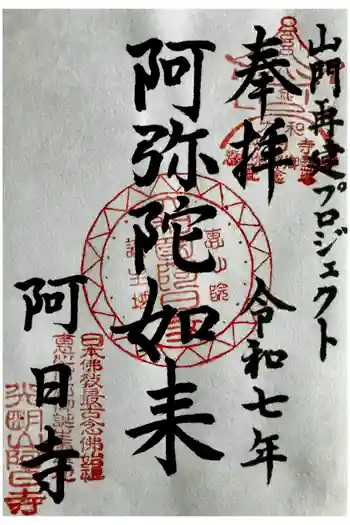 山門再建プロジェクト
奉拝
令和七年
阿弥陀如来
阿日寺
日本佛教最古念佛始祖
光明山阿日寺